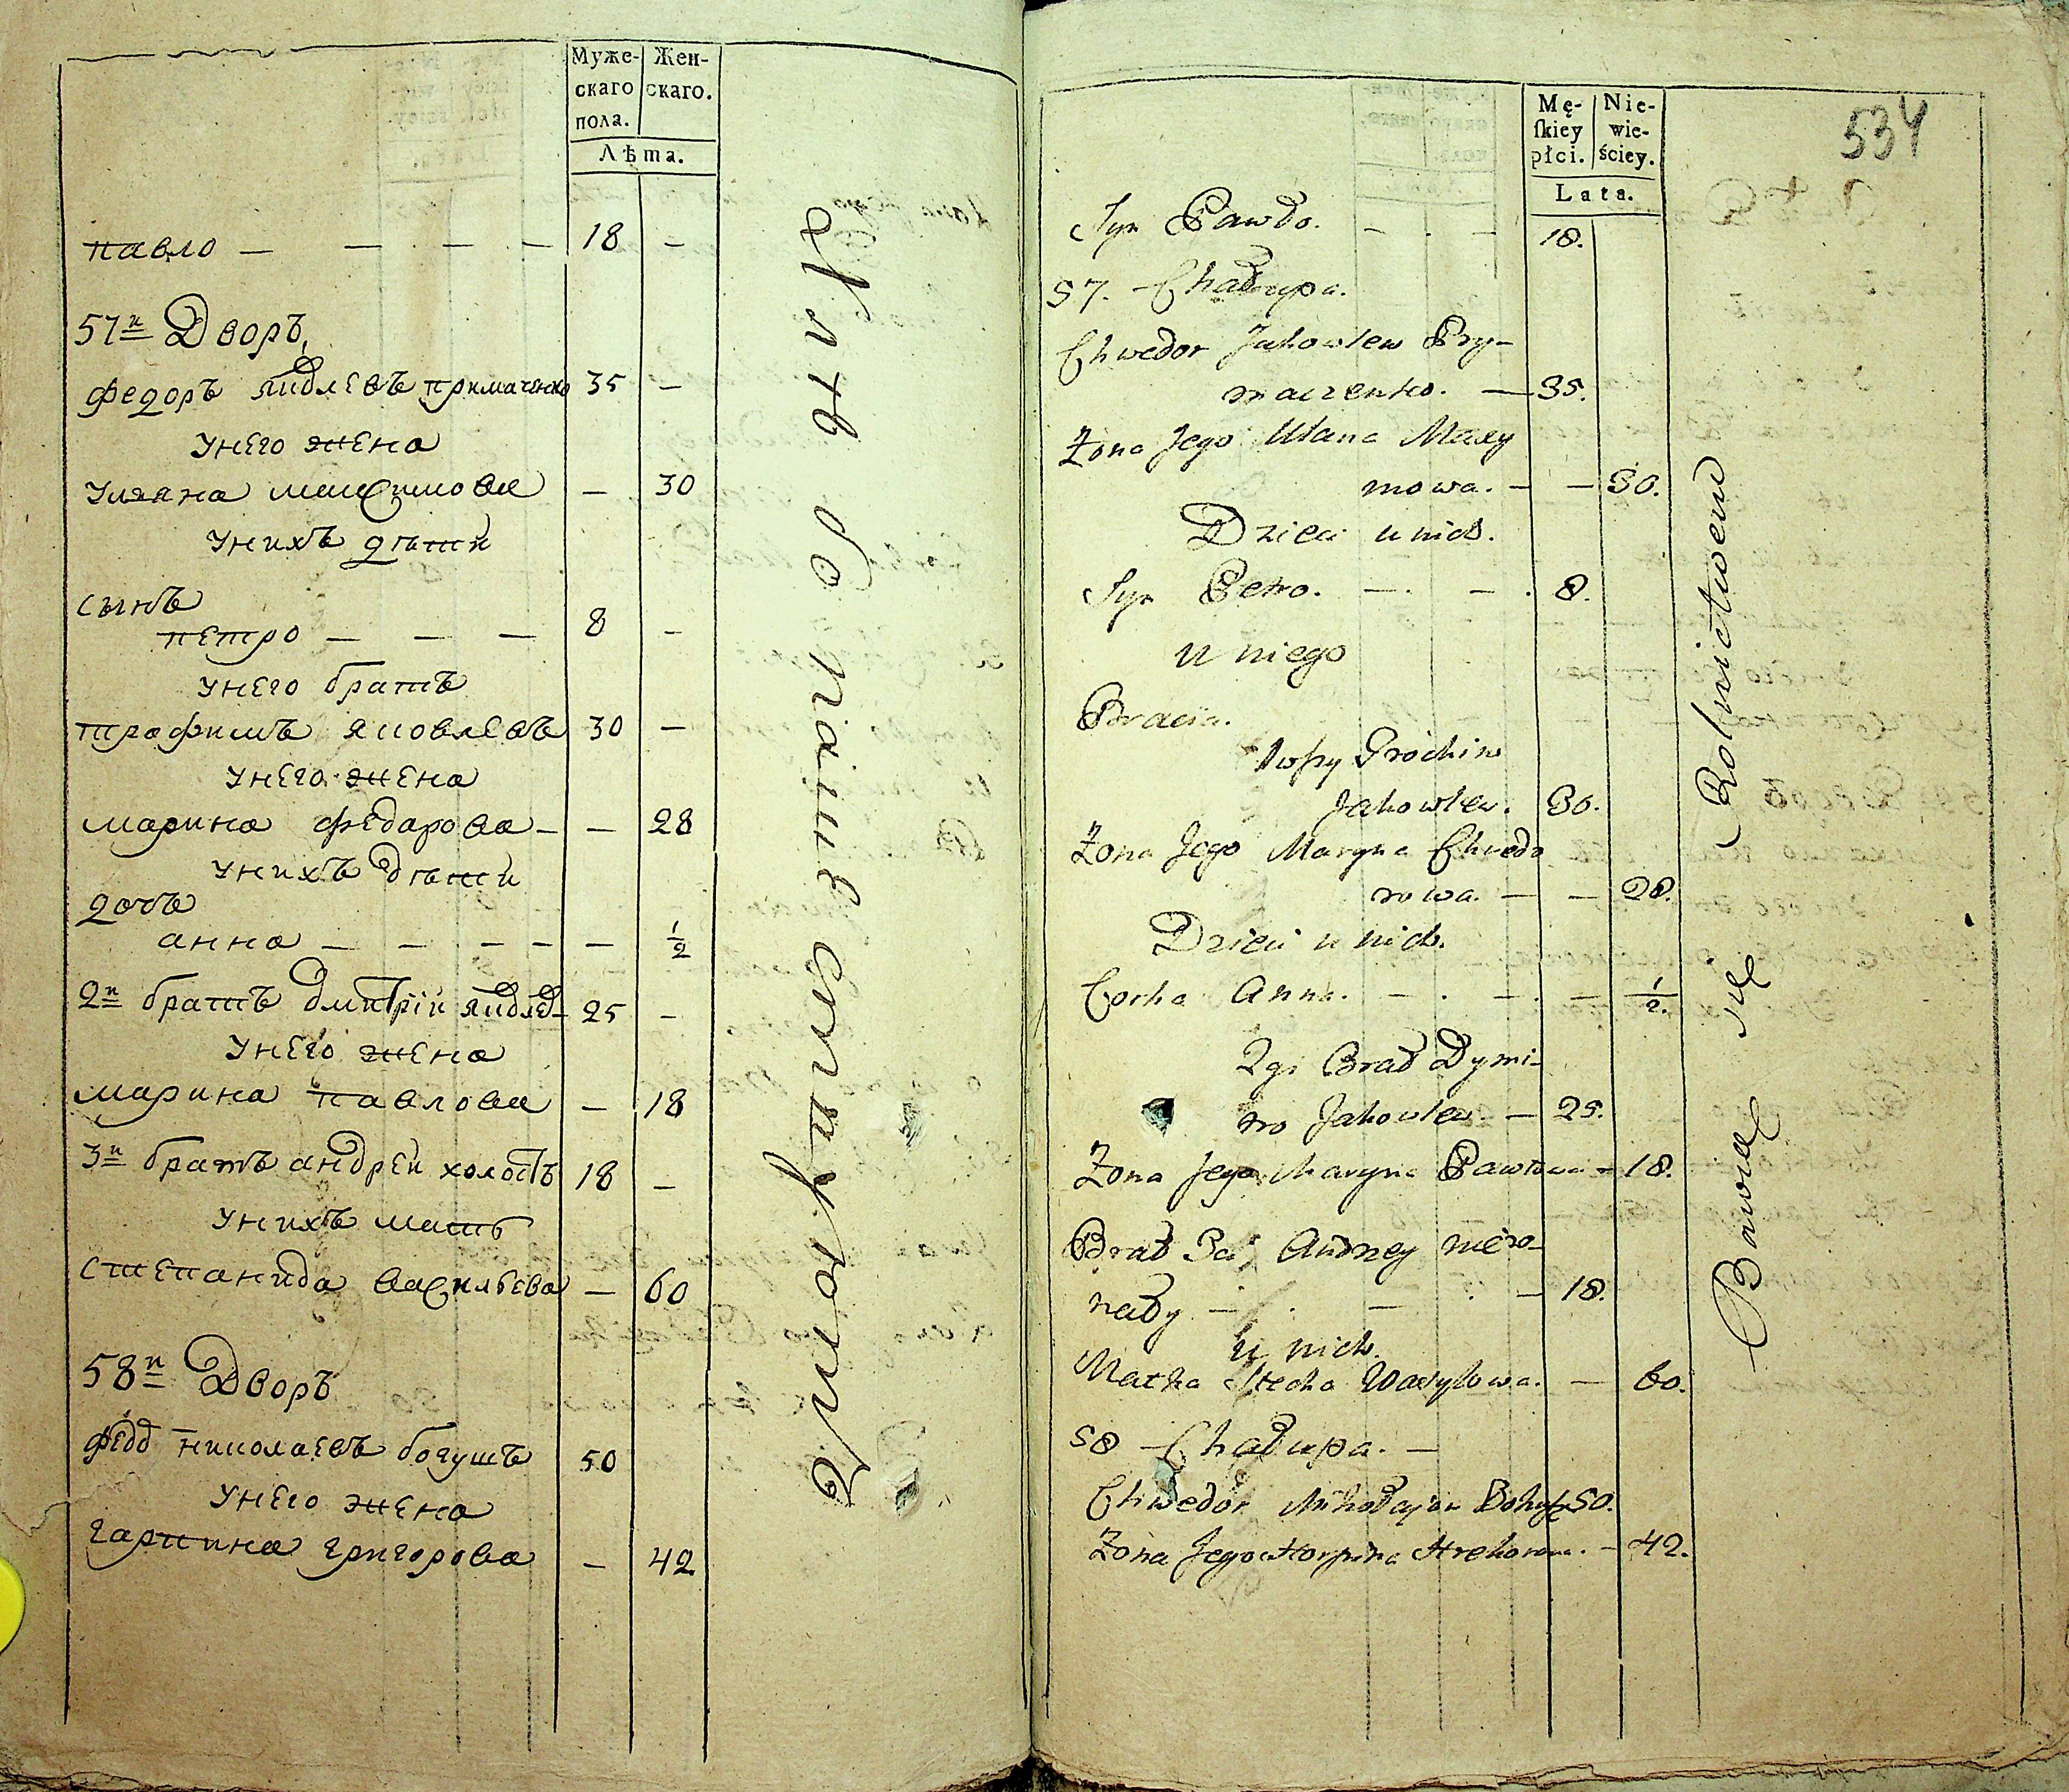 Муже-
скаго
пола.
Жен-
скаго.
Лѣта.
павло — — — — 18 —
57й Дворъ
федоръ яковлевъ примаченко 35 —
унего жена
уляна максимова — 30
унихъ дѣти
сынъ
петро — — — 8 —
унего братъ
трофимъ яковлевъ 30 —
унего жена
марина федарова — — 28
унихъ дѣти
дочь
анна — — — — — 1/2
2й братъ дмитрій яковлев 25 —
унего жена
марина павлова — 18
3й братъ андрей холостъ 18 —
унихъ мать
степанида васильева — 60
58й Дворъ
федо николаевъ богушъ 50
унего жена
гарпина григорова — 42
Хлѣбопашествуютъ
534
Mę-
ſkiey
płci.
Nie-
wie-
ściey.
Lata.
Syn Pawło. — . — 18.
57. Chałupa.
Chwedor Jakowlew Pry-
maczenko. — 35.
Żona Jego Ulana Maxy
mowa. — — 30.
Dzieci u nich.
Syn Petro. — . — . 8.
u niego
Bracia.
1wszy Trochim
Jakowlew. 30.
Żona Jego Maryna Chwedo
rowa. — — 28.
Dzieci u nich.
Corka Anna. — . — . — 1/2.
2gi Brat Dymi-
tro Jakowlew — 25.
Żona Jego Maryna Pawłowa — 18.
Brat 3ci Andrey nieżo-
naty — . — . — 18.
u nich.
Matka Stecha Wasylowa. — 60.
58 Chałupa. —
Chwedor Mikołajow Bohusz 50.
Żona Jego Horpina Hrehorowa. — 42.
Bawić się Rolnictwem